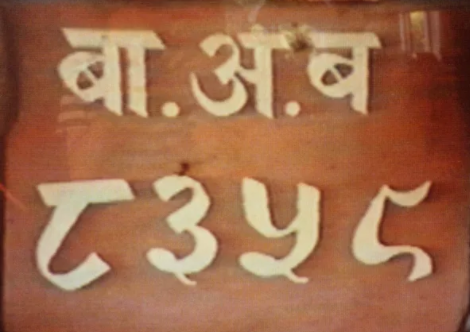 बा.अ.ब
८३५९